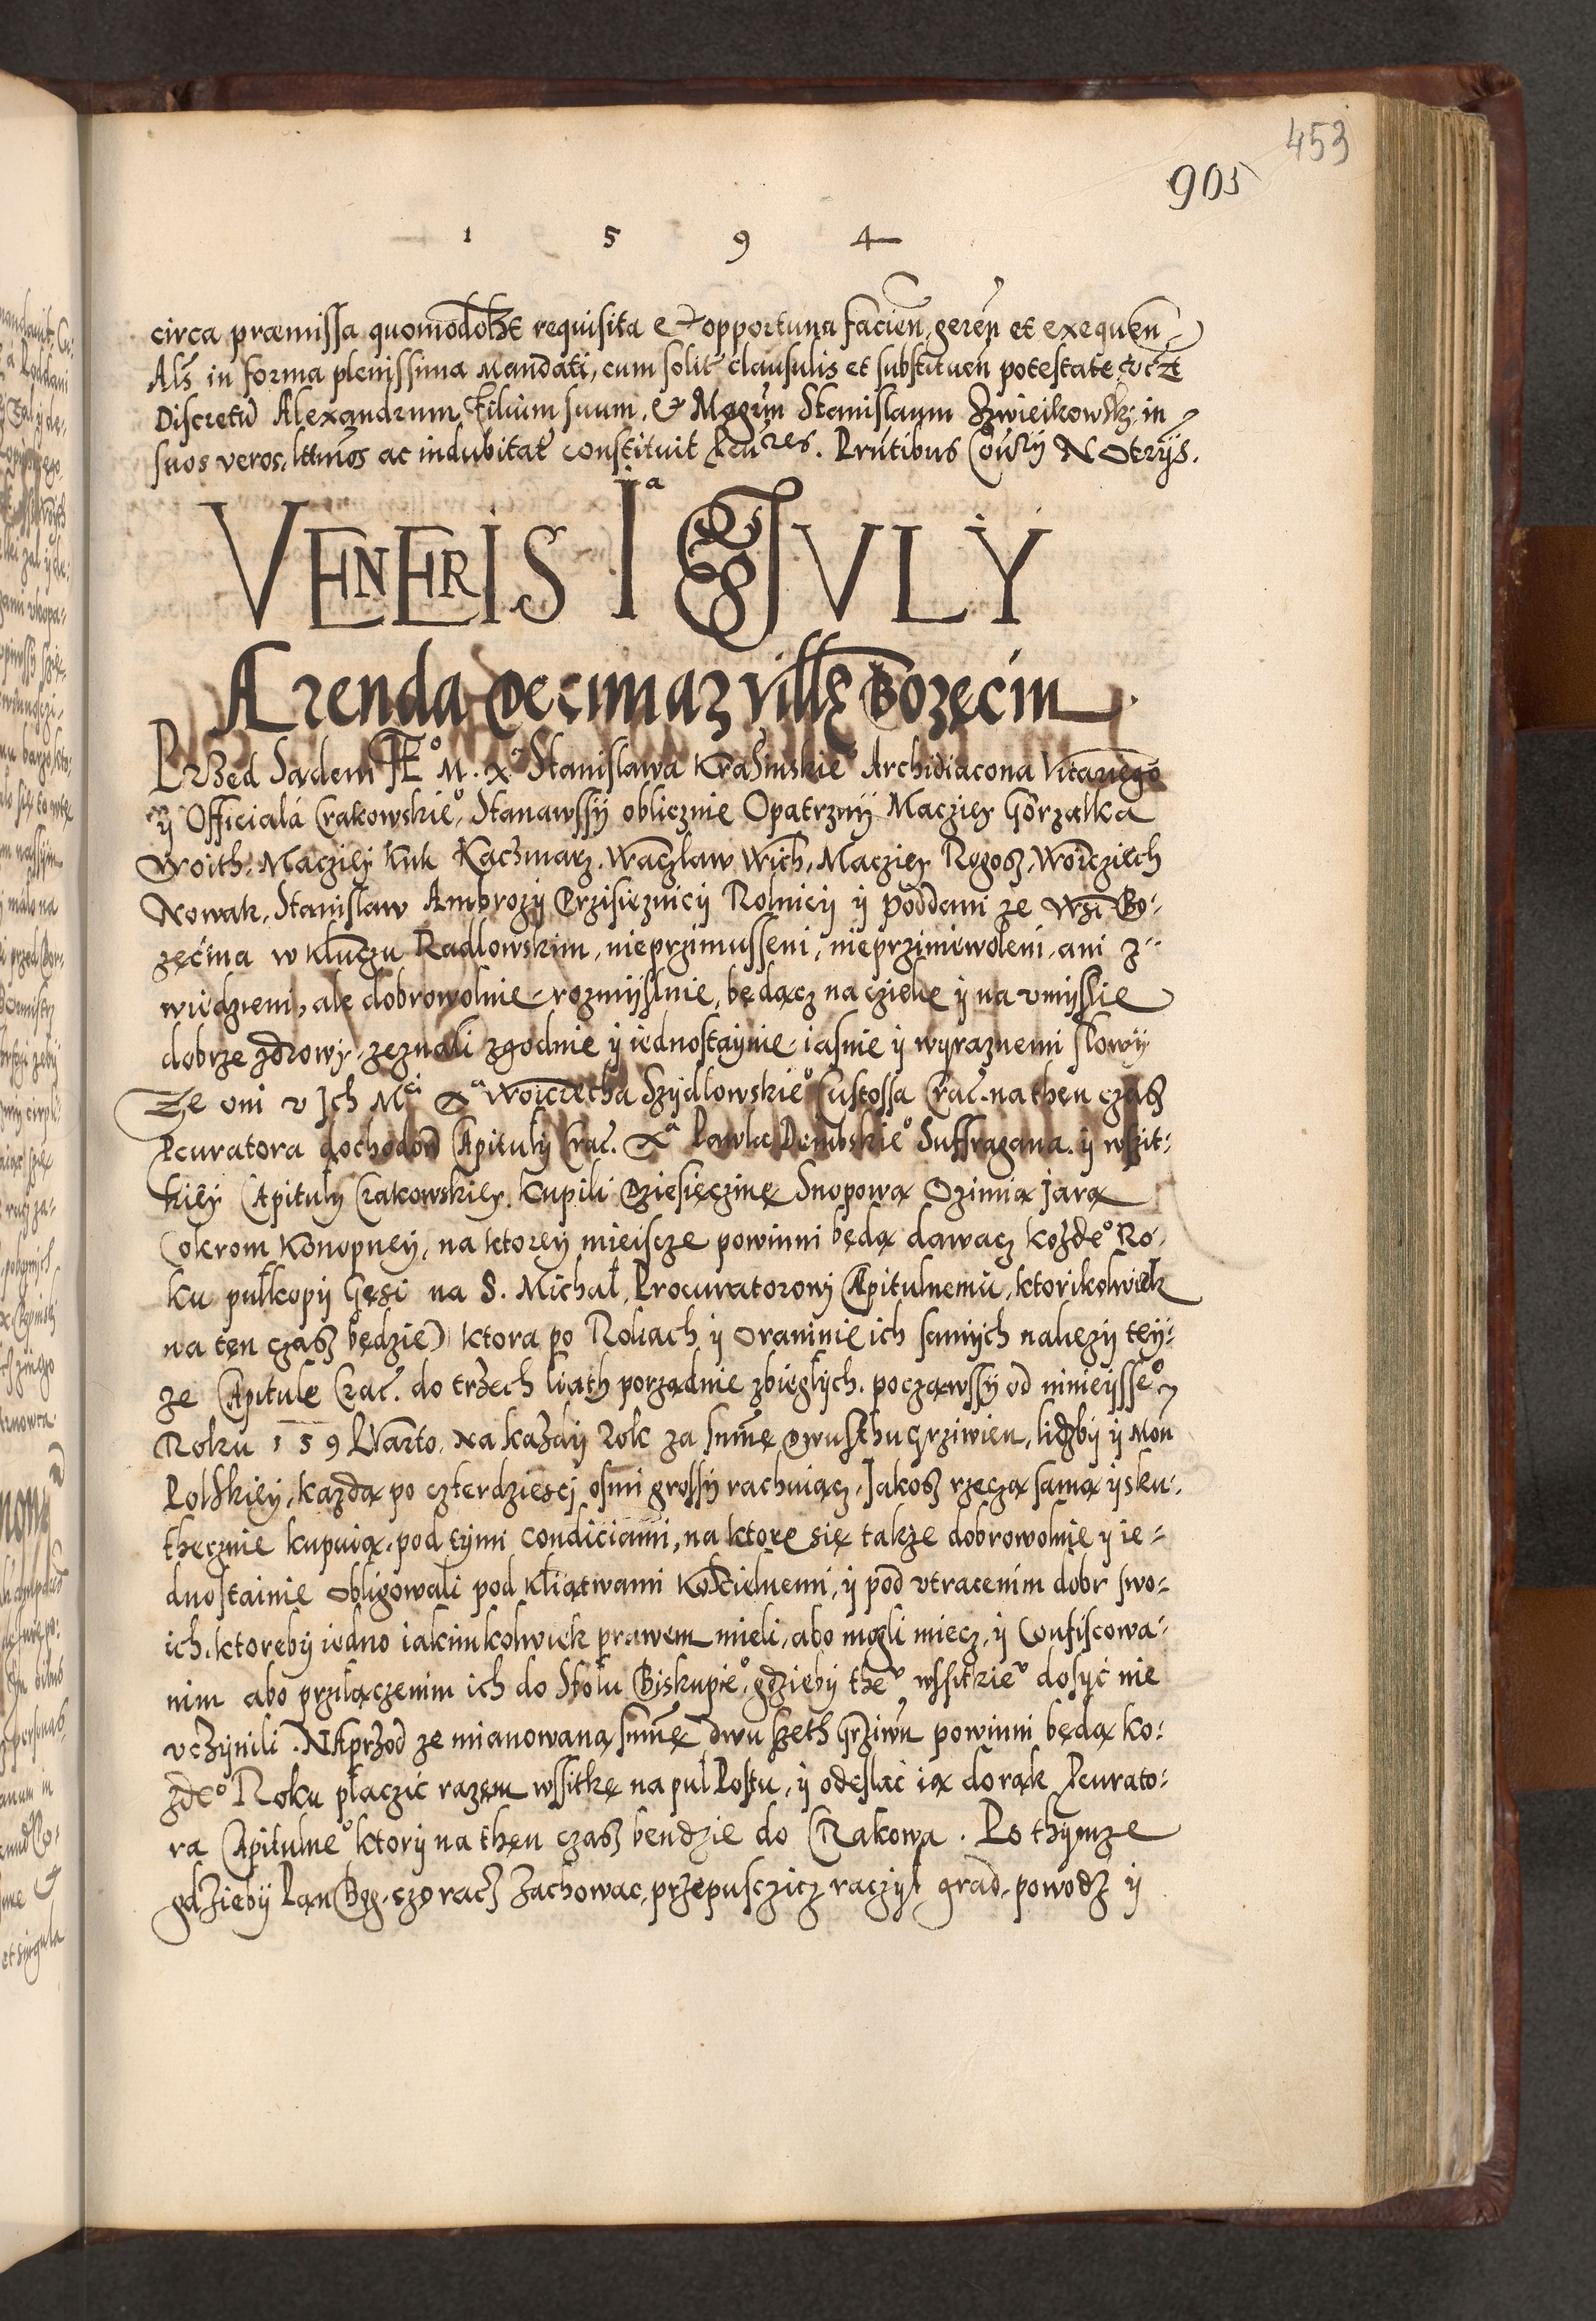 453
905
1 5 9 4
circa præmissa quomodolȝt requisita et opportuna facien̄, geren̄ et exequen̄
Als̄ in forma plenissima Mandati, cum solit̄ clausulis et substituen̄ potestate
Discretū Alexandrum Filium suum, et Magrm̄ Stanislaum Szwieikowsky in
suos veros, lttmōs ac indubitat̄ constituit Pcu͞res. Prn̄tibus Notrÿs.
VENERIS Iᵃ IVLY
Arenda Decimaȝ Villę Bozęcin
Przed Sądem JE° M. Xᵃ Stanislawa Krasinskie° Archidiacona
ÿ Officialá Crakowskie°, Stanawssÿ oblicznie Opatrznÿ Macziey Gorzalka
Woith, Macziey Kuk Kaczmarz, Waczlaw Wich, Macziey Rogosz, Woiczięch
Nowak, Stanislaw Ambrozÿ Przisieznicÿ Rolnicÿ ÿ poddani ze Wsi Bo-
zęcina w Kluczu Radlowskim, nieprzimusseni, nieprziniewoleni, ani z-
wiedzieni, ale dobrowolnie rozmÿslnie, będącz na cziele ÿ na vmÿslie
dobrze zdrowi, zeznali zgodnie ÿ iednostaÿnie iasnie ÿ wyraznemi slowÿ
Ze oni v Ich Mci Xᵃ Woiciecha Szÿdlowskie° Custossa Crac̄. na then czasz
Pcuratora dochodow Capitulÿ Crac̄. Xᵃ Pawla Dembskie° Suffragana ÿ wszit-
kieÿ Capitulÿ Crakowskiey. Kupili Dziesięczinę Snopową Ozimią Jarą
(okrom Konopneÿ, na ktoreÿ mieiscze powinni będą dawacz kożde° Ro-
ku pulkopÿ Gęsi na S. Michał, Procuratorowi Capitulnemu, ktorikolwiek
na ten czasz będzie) ktora po Rolach ÿ Oraninie ich samÿch nalezÿ teÿ-
ze Capitule Crac̄. do trzech liath porządnie zbieglÿch. począwssÿ od ninieÿsse°
Roku 159 Kwarto. Na każdÿ Rok za sum̄ę dwusthu Grziwien, liczbÿ ÿ Mon̄
Polskieÿ, każdą po czterdziesci osmi grossÿ rachuiącz. Jakosz rzeczą samą ÿ sku-
thecznie kupuią, pod tÿmi Condiciami, na ktore się także dobrowolnie ÿ ie-
dnostainie obligowali pod kliątwami Koscielnemi, ÿ pod vtracenim dobr swo-
ich, ktorebÿ iedno iakimkolwiek prawem mieli, abo mogli miecz, ÿ Confiscowa-
nim abo prziłączenim ich do Stolu Biskupie°, gdziebÿ the° wssitkie° dosÿć nie
vczÿnili. NAprzod ze mianowaną sum̄ę dwu szeth Grziwn̄ powinni będą ko-
żde° Roku płaczić razem wssitkę na pul Postu, ÿ odeslać ią do rąk Pcurato-
ra Capitulne° ktorÿ na then czasz bendzie do CRakowa. Po thÿmze
gdziebÿ Pan Bog, czo racz zachowac, przepusczicz raczył grad, powodz ÿ